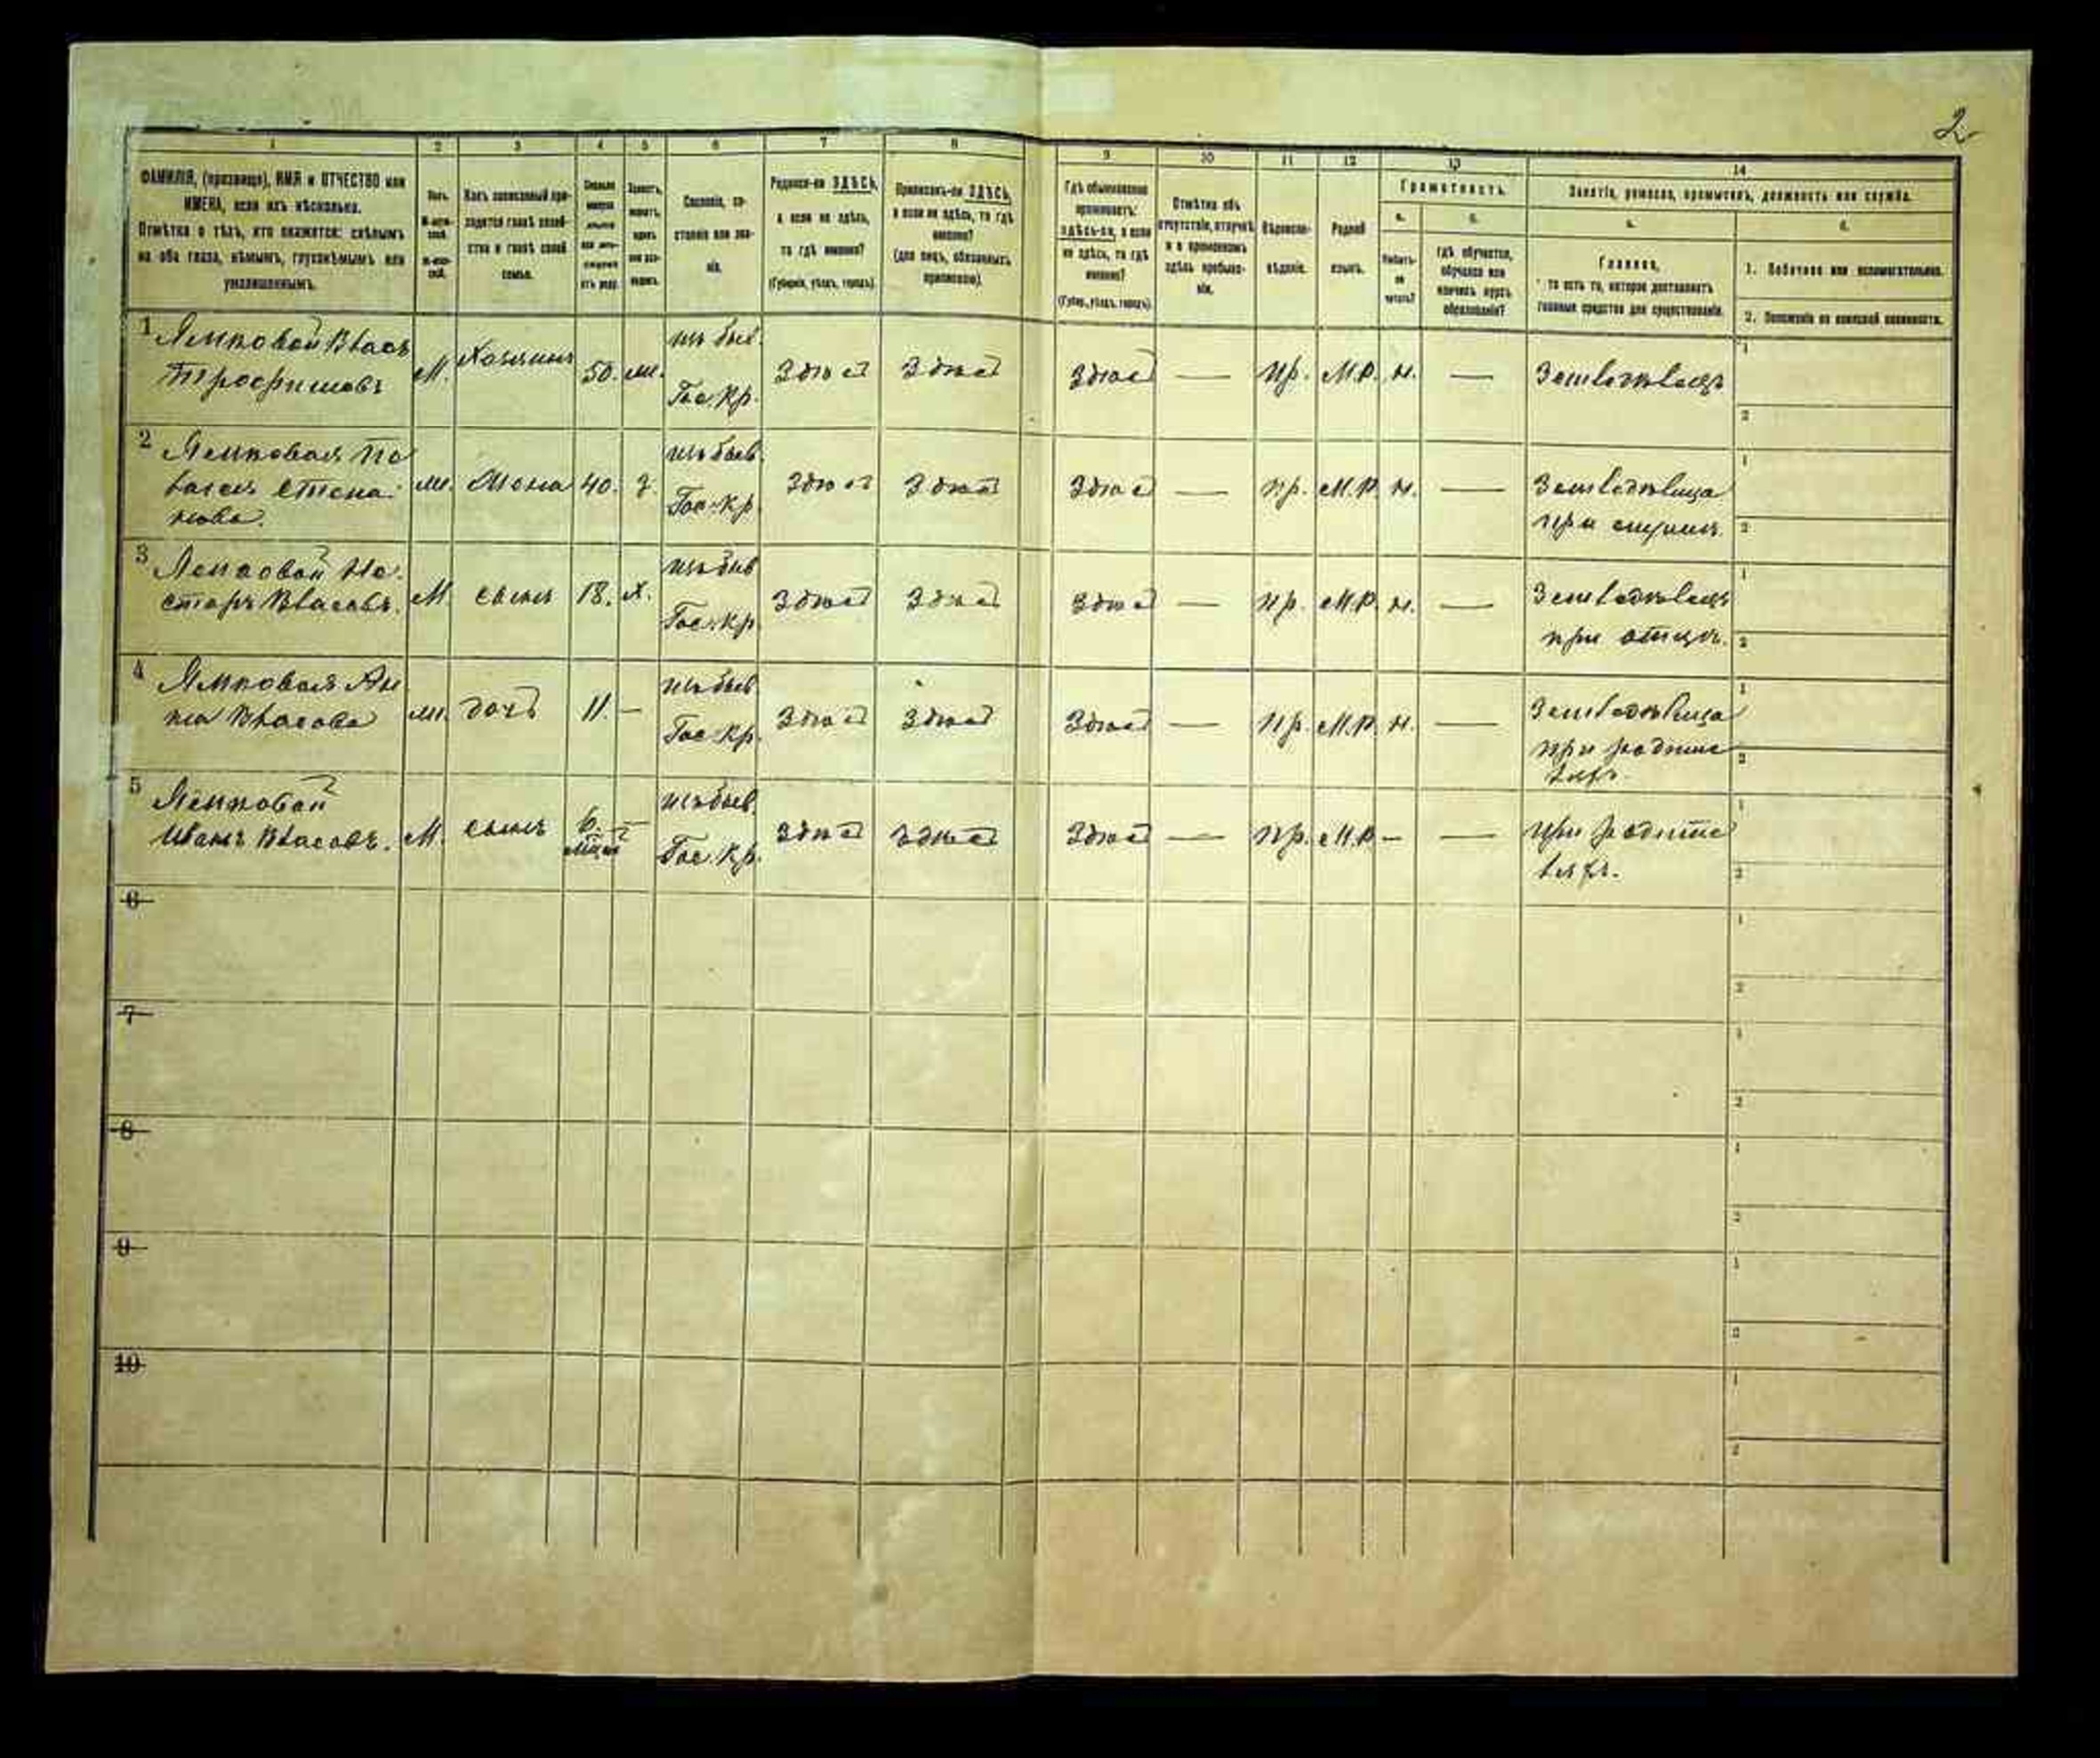 2
1 2 3 4 5 6 7 8 9 10 11 12 13 14
ФАМИЛІЯ, (прозвище), ИМЯ и ОТЧЕСТВО или
ИМЕНА, если ихъ нѣсколько.
Отмѣтка о тѣхъ, кто окажется: слѣпымъ
на оба глаза, нѣмымъ, глухонѣмымъ или
умалишеннымъ.
Полъ.
М-муж-
ской.
Ж-жен-
скій.
Какъ записанный при-
ходится главѣ хозяй-
ства и главѣ своей
семьи.
Сословіе, со-
стояніе или зва-
ніе.
Родился-ли ЗДѢСЬ,
а если не здѣсь,
то гдѣ именно?
(Губернія, уѣздъ, городъ).
Приписанъ-ли ЗДѢСЬ,
а если не здѣсь, то гдѣ
именно?
(для лицъ, обязанныхъ
припискою).
Гдѣ обыкновенно
проживаетъ:
здѣсь-ли, а если
не здѣсь, то гдѣ
именно?
(Губер., уѣздъ, городъ).
Отмѣтка объ
отсутствіи, отлучкѣ
и о временномъ
здѣсь пребыва-
ніи.
Вѣроиспо-
вѣданіе.
Родной
языкъ.
Грамотность.
а.
Умѣетъ-
ли
читать?
б.
гдѣ обучается,
обучался или
кончилъ курсъ
образованія?
Занятіе, ремесло, промыселъ, должность или служба.
а.
Главное,
то есть то, которое доставляетъ
главныя средства для существованія.
б.
1. Побочное или вспомогательное.
2. Положеніе по воинской повинности.
1 Власъ
Трофимовъ М. Хозяинъ 50. ж. изъ быв. Гос. Кр. Здѣсь Здѣсь Здѣсь — Пр. М.Р. н. — Земледѣлецъ
2 ж. Жена 40. з. изъ быв. Гос. Кр. Здѣсь Здѣсь Здѣсь — Пр. М.Р. н. — Земледѣлица
при мужѣ
3 Не-
сторъ Власовъ. М. сынъ 18. х. изъ быв Гос. Кр Здѣсь Здѣсь Здѣсь — Пр. М.Р. н. — Земледѣлецъ
при отцѣ.
4 Ан
на Власова ж. дочь 11. — изъ быв. Гос. Кр. Здѣсь Здѣсь Здѣсь — Пр. М.Р. н. — Земледѣлица
при родите
ляхъ.
5
Иванъ Власовъ. М. сынъ 6. мѣс. — изъ быв. Гос. Кр. Здѣсь Здѣсь Здѣсь — Пр. М.Р. — — при родите
ляхъ.
6
7
8
9
10